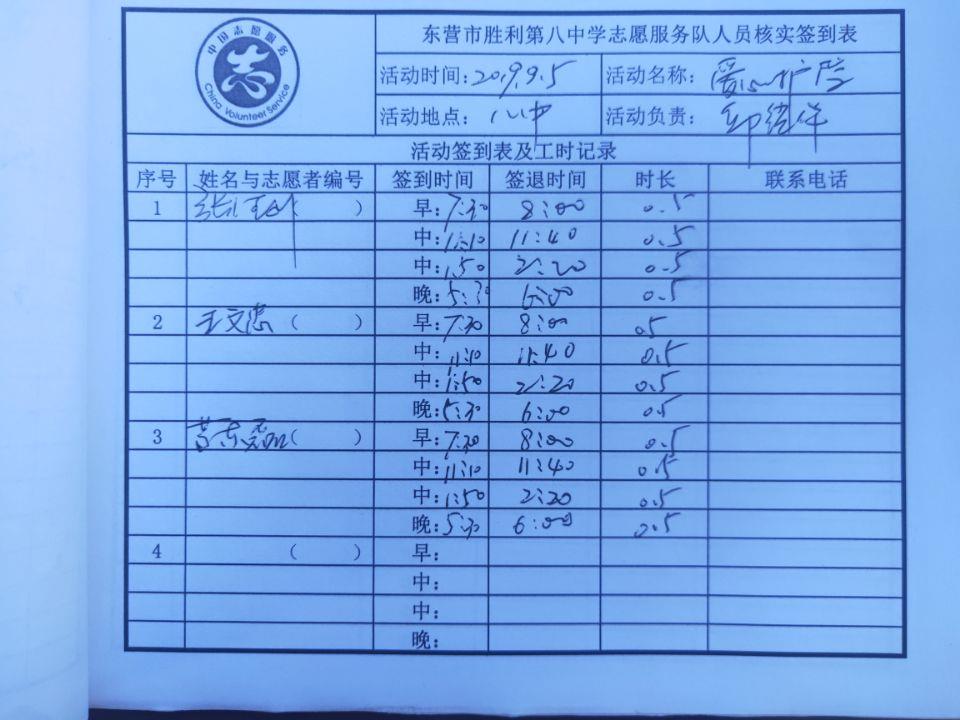 中国志愿服务
志
China Volunteer Service
东营市胜利第八中学志愿服务队人员核实签到表
活动时间: 2019.9.5 活动名称: 爱心护院
活动地点: 八中 活动负责:
活动签到表及工时记录
序号 姓名与志愿者编号 签到时间 签退时间 时长 联系电话
1 ( ) 早: 7:30 8:00 0.5
中: 11:10 11:40 0.5
中: 1:50 2:20 0.5
晚: 5:30 6:00 0.5
2 王文 ( ) 早: 7:30 8:00 0.5
中: 11:10 11:40 0.5
中: 1:50 2:20 0.5
晚: 5:30 6:00 0.5
3 ( ) 早: 7:30 8:00 0.5
中: 11:10 11:40 0.5
中: 1:50 2:20 0.5
晚: 5:30 6:00 0.5
4 ( ) 早:
中:
中:
晚: